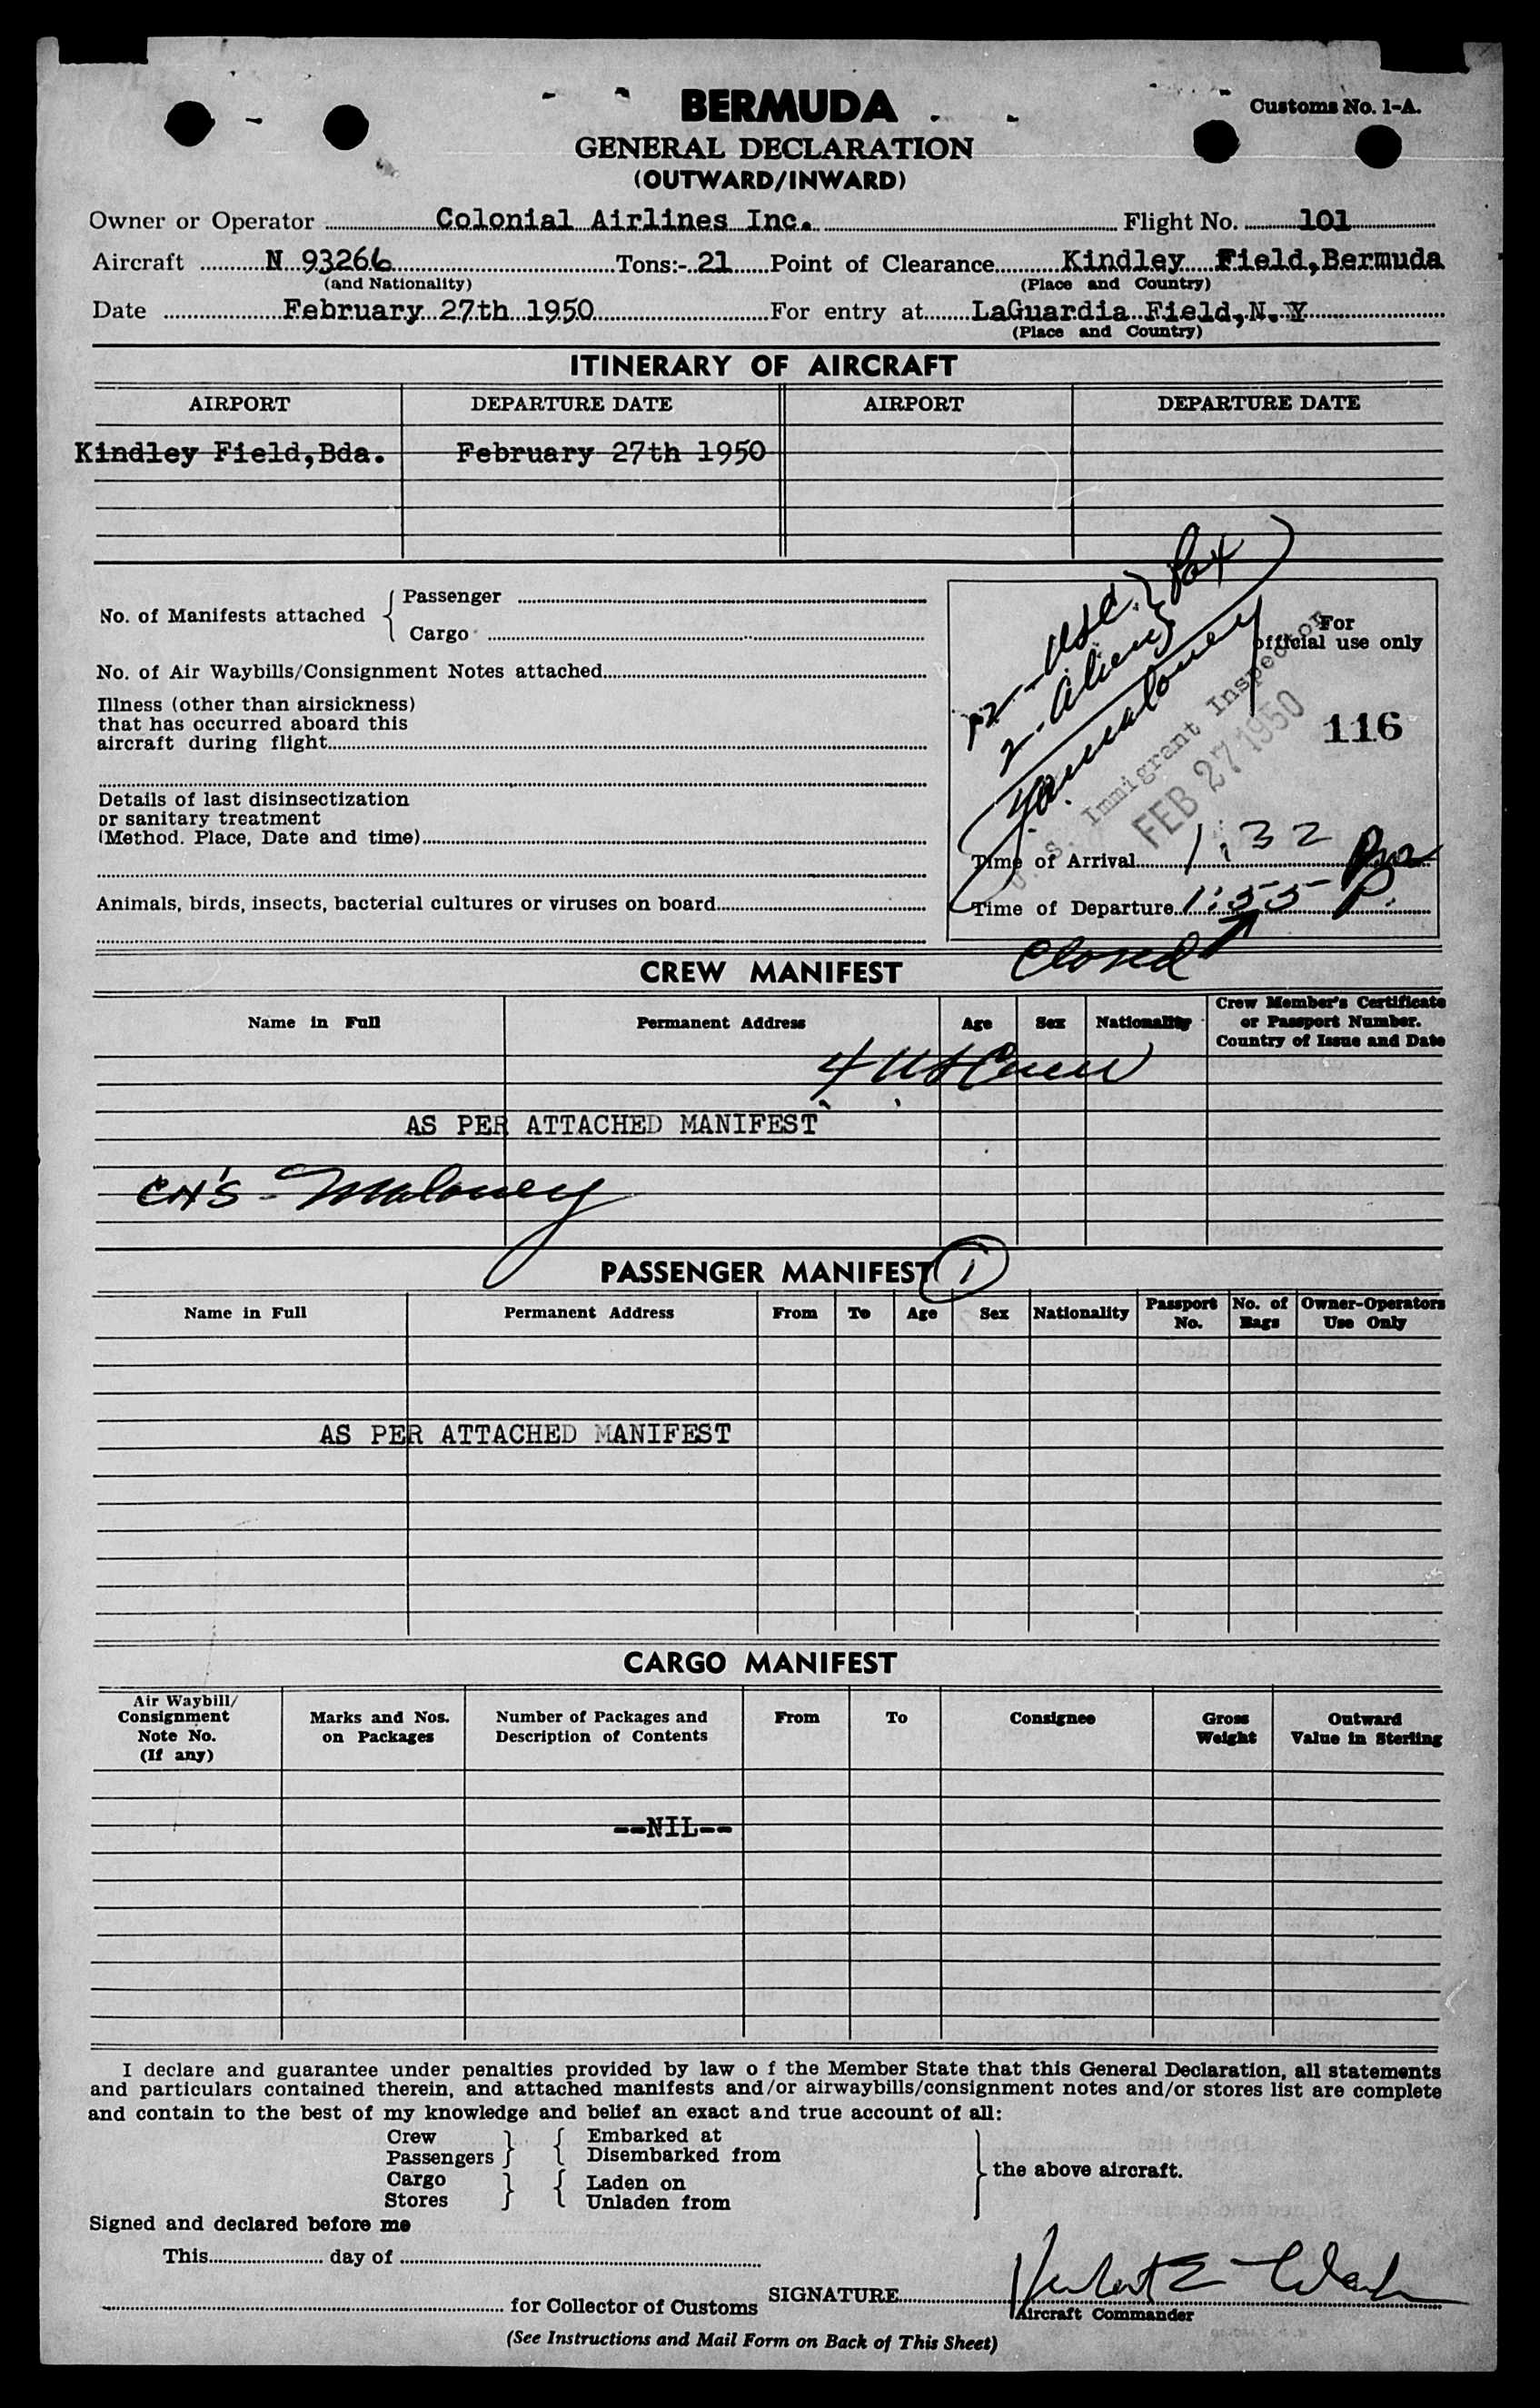 Customs No. 1-A.
BERMUDA
GENERAL DECLARATION
(OUTWARD/INWARD)
Owner or Operator Colonial Airlines Inc. Flight No. 101
Aircraft N 93266 Tons:- 21 Point of Clearance Kindley Field,Bermuda
(and Nationality) (Place and Country)
Date February 27th 1950 For entry at LaGuardia Field,N.Y
(Place and Country)
ITINERARY OF AIRCRAFT
AIRPORT DEPARTURE DATE AIRPORT DEPARTURE DATE
Kindley Field,Bda. February 27th 1950
No. of Manifests attached { Passenger
Cargo
No. of Air Waybills/Consignment Notes attached
Illness (other than airsickness)
that has occurred aboard this
aircraft during flight
Details of last disinsectization
or sanitary treatment
(Method. Place, Date and time)
Animals, birds, insects, bacterial cultures or viruses on board
USC } Pax
2 - Aliens
Maloney
U.S. Immigrant Inspector
FEB 27 1950
For
official use only
116
Time of Arrival 1:32 Pm
Time of Departure 1:55 P.
Closed
CREW MANIFEST
Name in Full Permanent Address Age Sex Nationality Crew Member's Certificate
or Passport Number.
Country of Issue and Date
4 US Crew
AS PER ATTACHED MANIFEST
CH'S - Maloney
PASSENGER MANIFEST 1
Name in Full Permanent Address From To Age Sex Nationality Passport No. No. of Bags Owner-Operators Use Only
AS PER ATTACHED MANIFEST
CARGO MANIFEST
Air Waybill/
Consignment
Note No.
(If any)
Marks and Nos.
on Packages
Number of Packages and
Description of Contents
From To Consignee
Gross
Weight
Outward
Value in Sterling
--NIL--
I declare and guarantee under penalties provided by law o f the Member State that this General Declaration, all statements
and particulars contained therein, and attached manifests and/or airwaybills/consignment notes and/or stores list are complete
and contain to the best of my knowledge and belief an exact and true account of all:
Crew } { Embarked at
Passengers Disembarked from
the above aircraft.
Cargo } { Laden on
Stores Unladen from
Signed and declared before me
This day of
for Collector of Customs SIGNATURE Herbert E
Aircraft Commander
(See Instructions and Mail Form on Back of This Sheet)